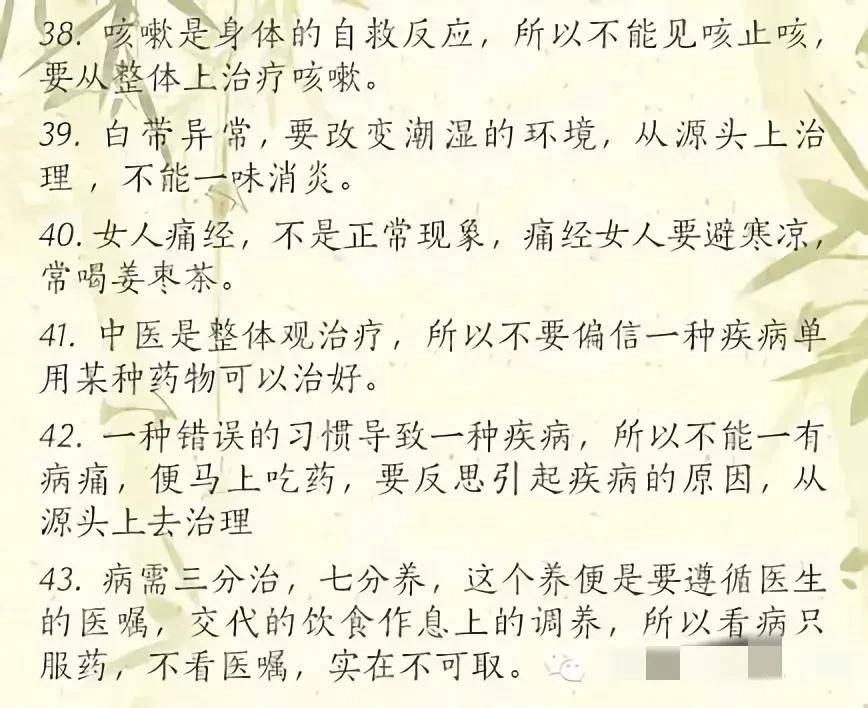 38. 咳嗽是身体的自救反应，所以不能见咳止咳，
要从整体上治疗咳嗽。
39. 白带异常，要改变潮湿的环境，从源头上治
理，不能一味消炎。
40. 女人痛经，不是正常现象，痛经女人要避寒凉，
常喝姜枣茶。
41. 中医是整体观治疗，所以不要偏信一种疾病单
用某种药物可以治好。
42. 一种错误的习惯导致一种疾病，所以不能一有
病痛，便马上吃药，要反思引起疾病的原因，从
源头上去治理
43. 病需三分治，七分养，这个养便是要遵循医生
的医嘱，交代的饮食作息上的调养，所以看病只
服药，不看医嘱，实在不可取。